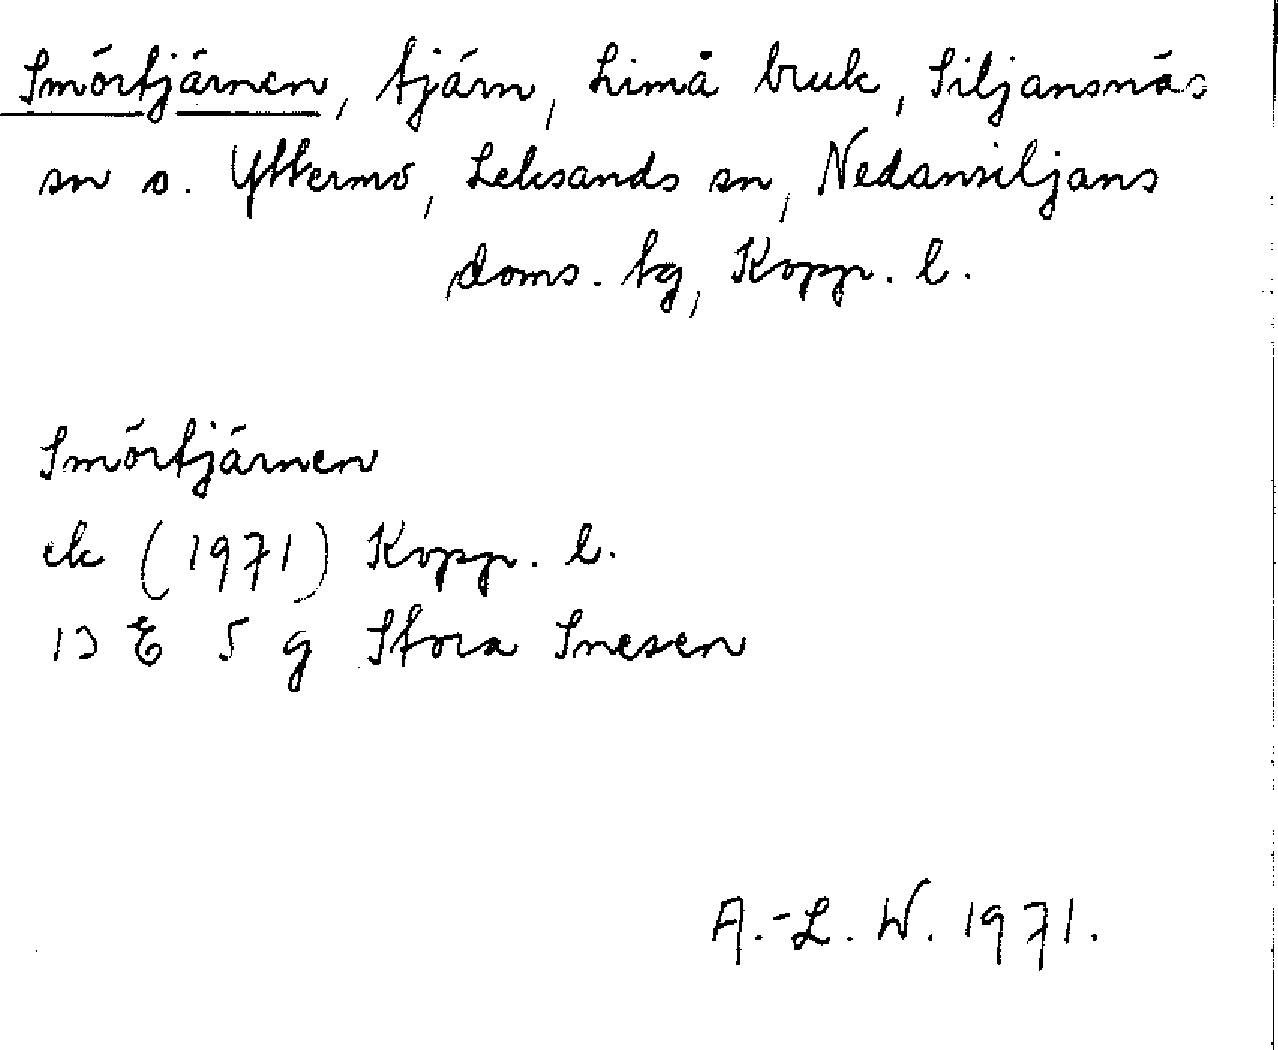 Smörtjärnen, tjärn, Limå bruk, Siljansnäs
sn o. Yttermo, Leksands sn, Nedansiljans
doms. tg, Kopp. l.
Smörtjärnen
ek (1971) Kopp. l.
13 E 5 g Stora Snesen
A.-L. W. 1971.